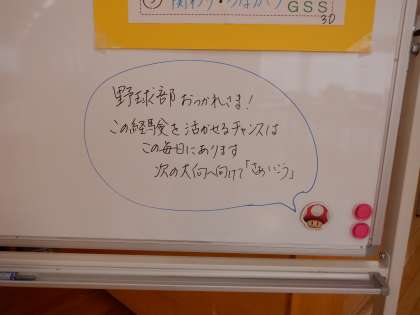 関わり・つながり
GSS
30
野球部おつかれさま!
この経験を活かせるチャンスは
この毎日にあります
次の大何へ向けて「さぁいこう」